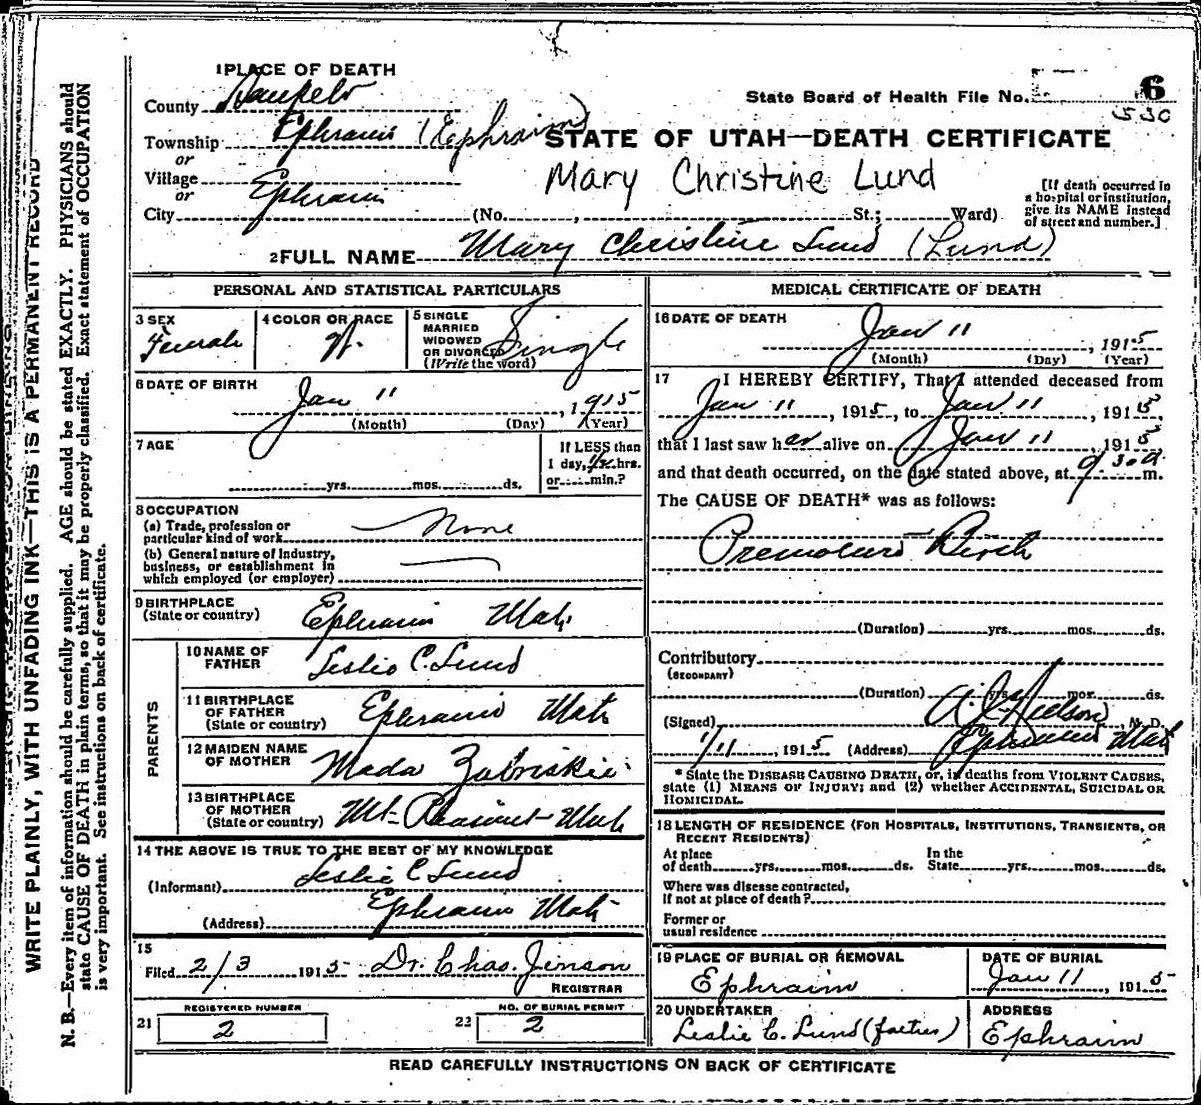 1 PLACE OF DEATH
County Sanpete
Township Ephraim (Ephraim)
or
Village
or
City Ephraim (No. , St.; Ward)
State Board of Health File No. 6
530
STATE OF UTAH—DEATH CERTIFICATE
Mary Christine Lund
[If death occurred in
a hospital or institution,
give its NAME instead
of street and number.]
2 FULL NAME Mary Christine Lund (Lund)
PERSONAL AND STATISTICAL PARTICULARS
3 SEX
Female
4 COLOR OR RACE
W.
5 SINGLE
MARRIED
WIDOWED
OR DIVORCED
(Write the word)
Single
6 DATE OF BIRTH
Jan 11, 1915
(Month) (Day) (Year)
7 AGE
yrs. mos. ds.
If LESS than
1 day, hrs.
or min.?
8 OCCUPATION
(a) Trade, profession or
particular kind of work None
(b) General nature of Industry,
business, or establishment in
which employed (or employer)
9 BIRTHPLACE
(State or country) Ephraim Utah
PARENTS
10 NAME OF
FATHER Leslie C. Lund
11 BIRTHPLACE
OF FATHER
(State or country) Ephraim Utah
12 MAIDEN NAME
OF MOTHER Mada Zabriskie
13 BIRTHPLACE
OF MOTHER
(State or country) Mt- Pleasant- Utah
14 THE ABOVE IS TRUE TO THE BEST OF MY KNOWLEDGE
(Informant) Leslie C Lund
(Address) Ephraim Utah
15
Filed 2/3 1915 Dr. Chas. Jenson
REGISTRAR
REGISTERED NUMBER
21 2
NO. OF BURIAL PERMIT
22 2
MEDICAL CERTIFICATE OF DEATH
16 DATE OF DEATH
Jan 11, 1915
(Month) (Day) (Year)
17 I HEREBY CERTIFY, That I attended deceased from
Jan 11, 1915, to Jan 11, 1915,
that I last saw her alive on Jan 11, 1915
and that death occurred, on the date stated above, at 9.30 a m.
The CAUSE OF DEATH* was as follows:
Premature Birth
(Duration) yrs. mos. ds.
Contributory
(SECONDARY)
(Duration) yrs. mos. ds.
(Signed) Nielson, M. D.
1/11, 1915 (Address) Ephraim Utah
* State the DISEASE CAUSING DEATH, or, in deaths from VIOLENT CAUSES,
state (1) MEANS OF INJURY; and (2) whether ACCIDENTAL, SUICIDAL OR
HOMICIDAL.
18 LENGTH OF RESIDENCE (FOR HOSPITALS, INSTITUTIONS, TRANSIENTS, OR
RECENT RESIDENTS)
At place
of death yrs. mos. ds.
In the
State yrs. mos. ds.
Where was disease contracted,
if not at place of death?
Former or
usual residence
19 PLACE OF BURIAL OR REMOVAL
Ephraim
DATE OF BURIAL
Jan 11, 1915
20 UNDERTAKER
Leslie C. Lund (father)
ADDRESS
Ephraim
READ CAREFULLY INSTRUCTIONS ON BACK OF CERTIFICATE
WRITE PLAINLY, WITH UNFADING INK—THIS IS A PERMANENT RECORD
N. B.—Every item of information should be carefully supplied. AGE should be stated EXACTLY. PHYSICIANS should
state CAUSE OF DEATH in plain terms, so that it may be properly classified. Exact statement of OCCUPATION
is very important. See instructions on back of certificate.